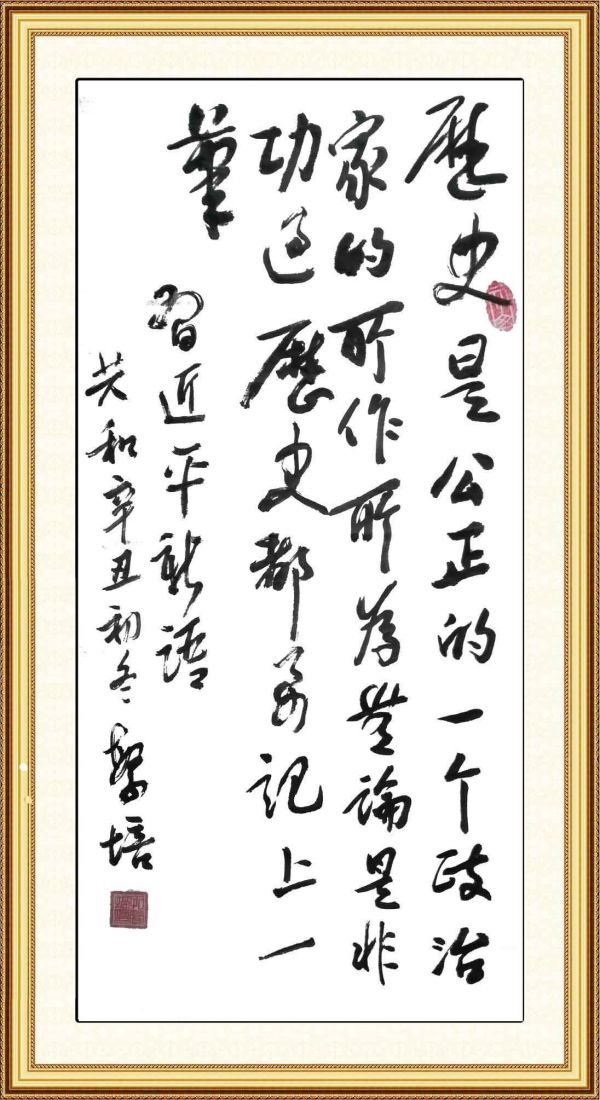 歷史是公正的一个政治
家的所作所為無論是非
功过歷史都要記上一
筆
習近平新語
共和辛丑初冬黎培